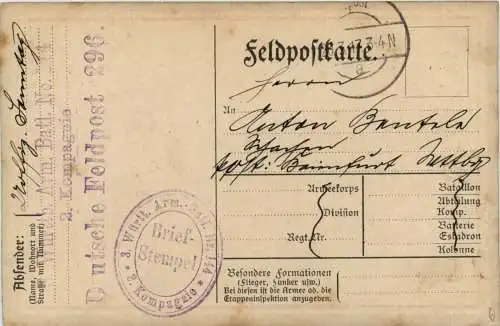 Feldpostkarte.
Herrn
An Anton Bentele
Post: Baienfurt Wttbg
Armeekorps
Division
Regt. Nr.
Bataillon
Abteilung
Komp.
Batterie
Eskadron
Kolonne
Besondere Formationen
(Flieger, Funker usw.)
Bei diesen ist die Armee ob. die
Etappeninspektion anzugeben.
Absender:
(Name, Wohnort und
Straße, evtl. Nummer)
Arm. Batl. No.
2. Kompagnie
Deutsche Feldpost 296.
* 3. Württ. Arm.-Batl. Nr. 144 *
Brief-
Stempel
2. Kompagnie